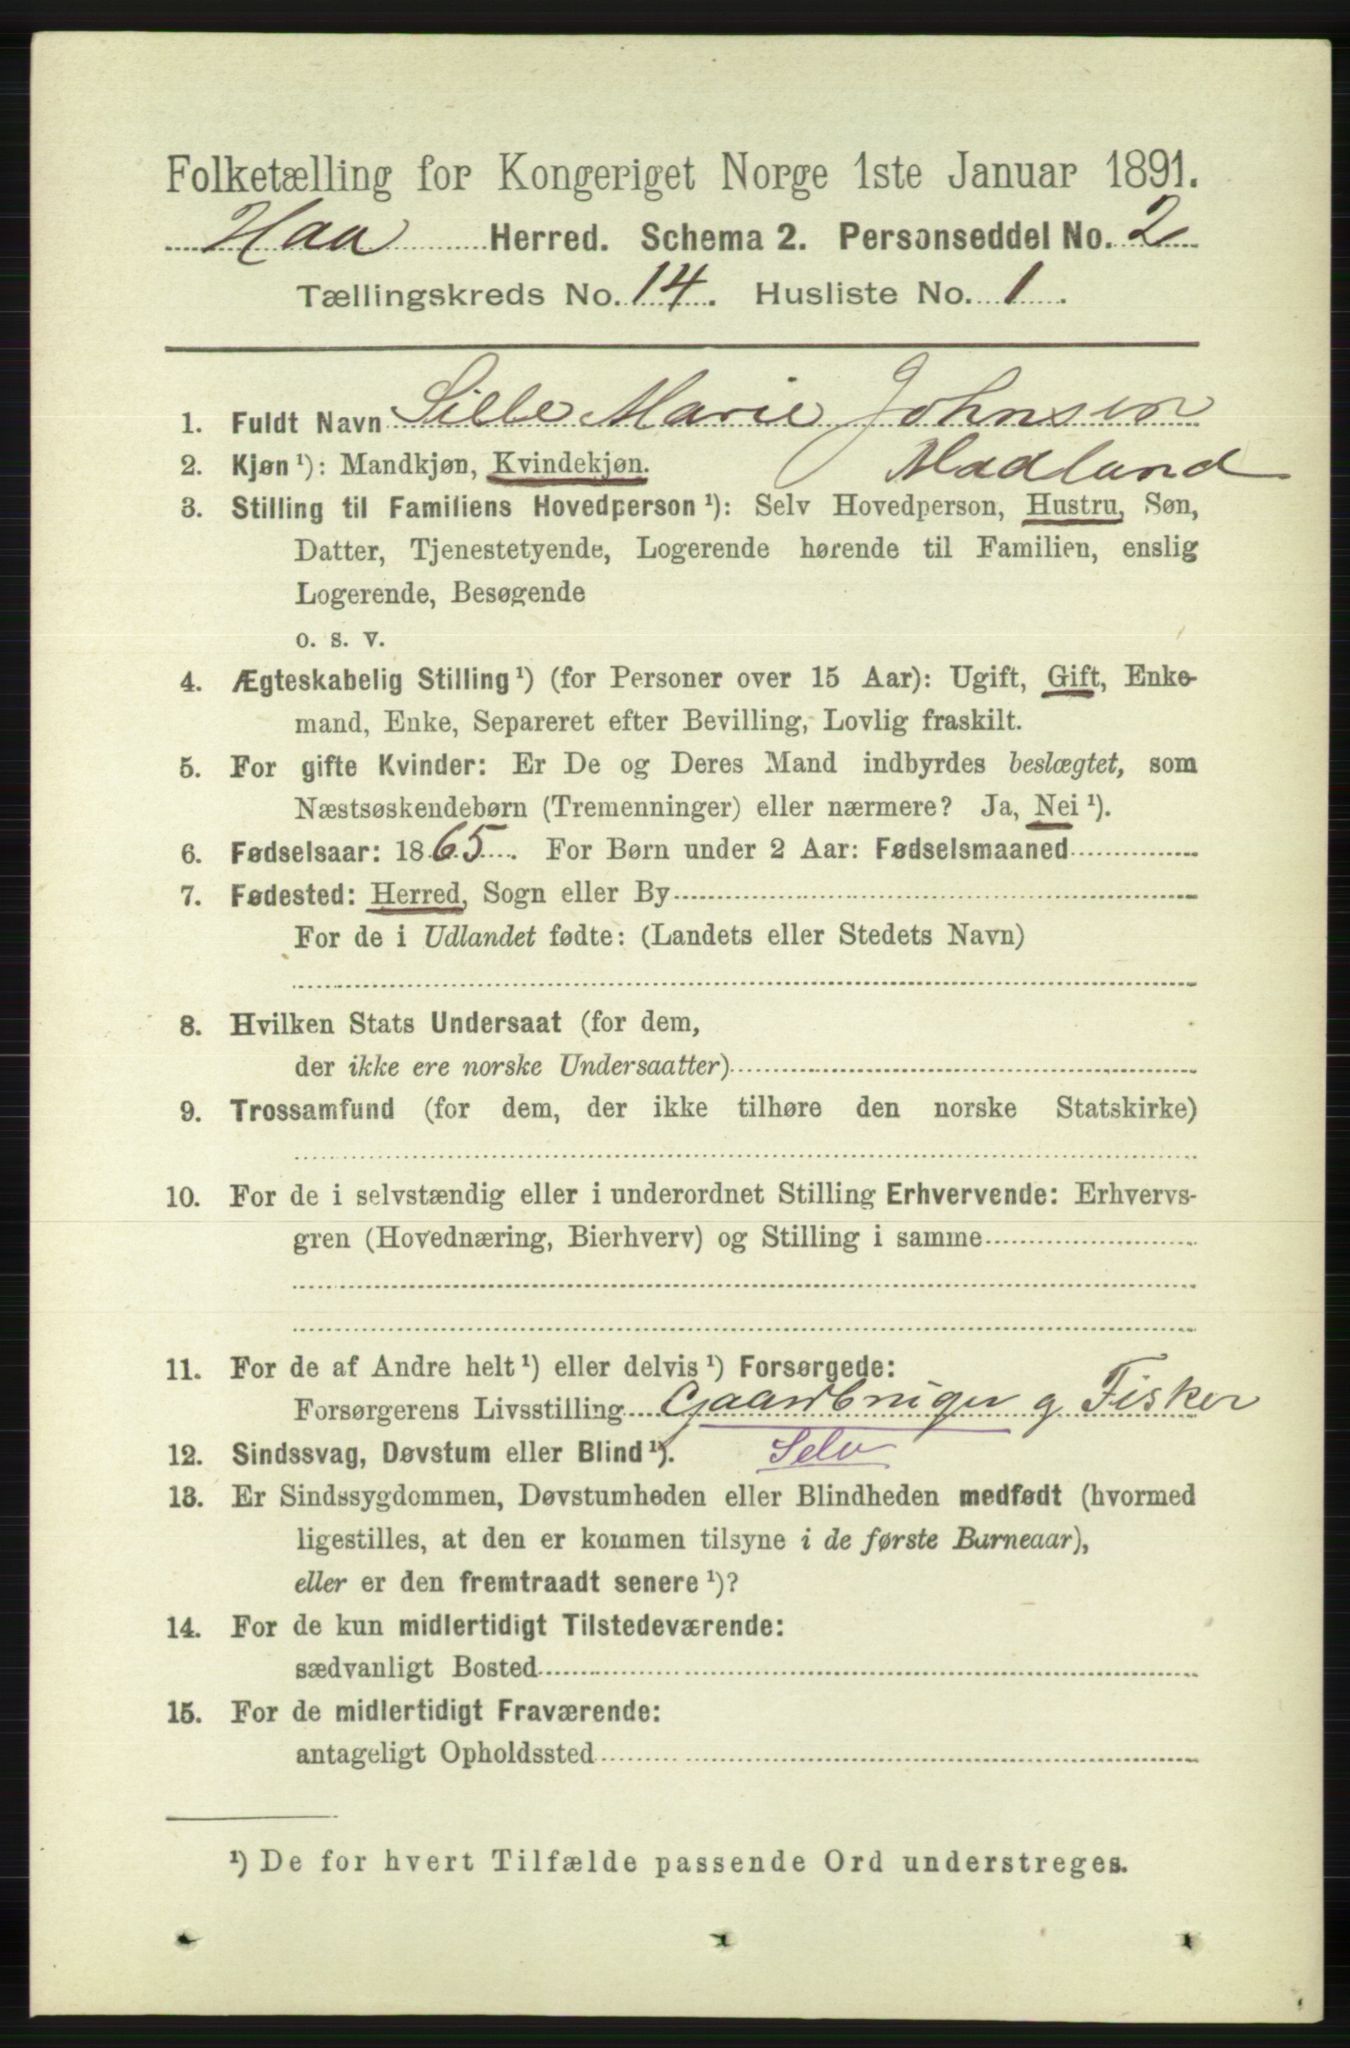 Folketælling for Kongeriget Norge 1ste Januar 1891.
Haa Herred. Schema 2. Personseddel No. 2
Tællingskreds No. 14. Husliste No. 1.
1. Fuldt Navn Sille Marie Johnsen
Madland
2. Kjøn ¹): Mandkjøn, Kvindekjøn.
3. Stilling til Familiens Hovedperson ¹): Selv Hovedperson, Hustru, Søn,
Datter, Tjenestetyende, Logerende hørende til Familien, enslig
Logerende, Besøgende
o. s. v.
4. Ægteskabelig Stilling ¹) (for Personer over 15 Aar): Ugift, Gift, Enke-
mand, Enke, Separeret efter Bevilling, Lovlig fraskilt.
5. For gifte Kvinder: Er De og Deres Mand indbyrdes beslægtet, som
Næstsøskendebørn (Tremenninger) eller nærmere? Ja, Nei ¹).
6. Fødselsaar: 1865. For Børn under 2 Aar: Fødselsmaaned
7. Fødested: Herred, Sogn eller By
For de i Udlandet fødte: (Landets eller Stedets Navn)
8. Hvilken Stats Undersaat (for dem,
der ikke ere norske Undersaatter)
9. Trossamfund (for dem, der ikke tilhøre den norske Statskirke)
10. For de i selvstændig eller i underordnet Stilling Erhvervende: Erhvervs-
gren (Hovednæring, Bierhverv) og Stilling i samme
11. For de af Andre helt ¹) eller delvis ¹) Forsørgede:
Forsørgerens Livsstilling Gaardbruger g Fisker
12. Sindssvag, Døvstum eller Blind ¹). Selv
13. Er Sindssygdommen, Døvstumheden eller Blindheden medfødt (hvormed
ligestilles, at den er kommen tilsyne i de første Barneaar),
eller er den fremtraadt senere ¹)?
14. For de kun midlertidigt Tilstedeværende:
sædvanligt Bosted
15. For de midlertidigt Fraværende:
antageligt Opholdssted
¹) De for hvert Tilfælde passende Ord understreges.